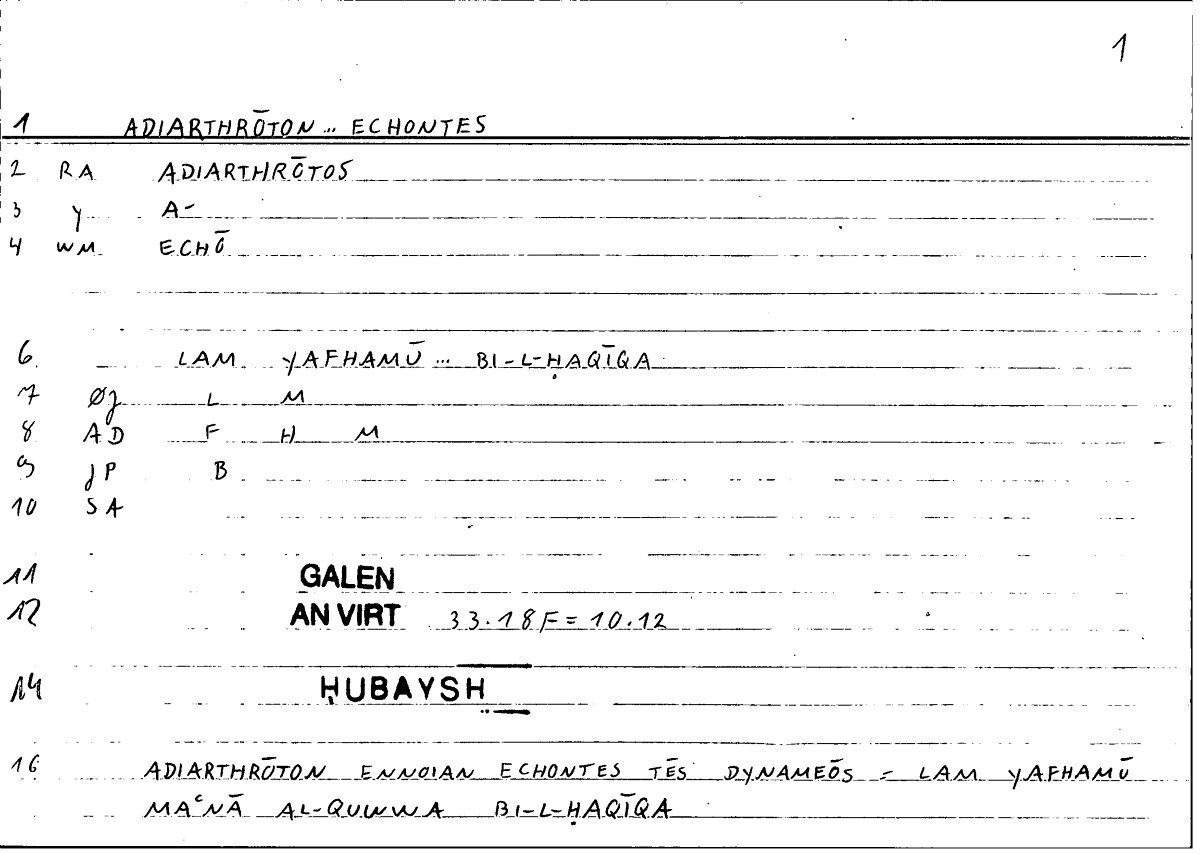 1
1 ADIARTHRŌTON … ECHONTES
2 RA ADIARTHRŌTOS
3 Y A-
4 WM ECHŌ
6 LAM YAFHAMŪ … BI-L-ḤAQĪQA
7 ØJ L M
8 AD F H M
9 JP B
10 SA
11 GALEN
12 AN VIRT 33.18F = 10.12
14 ḤUBAYSH
16 ADIARTHRŌTON ENNOIAN ECHONTES TĒS DYNAMEŌS = LAM YAFHAMŪ
MAʿNĀ AL-QUWWA BI-L-ḤAQĪQA